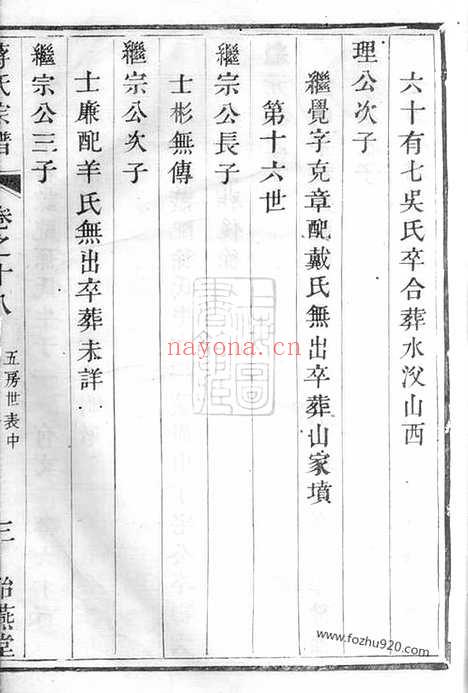 六十有七吳氏卒合葬水汊山西
理公次子
繼覺字克章配戴氏無出卒葬山家墳
第十六世
繼宗公長子
士彬無傳
繼宗公次子
士廉配羊氏無出卒葬未詳
繼宗公三子
蔣氏宗譜
卷之十八
五房世表中
三
貽燕堂
nayona.cn
www.fozhu920.com